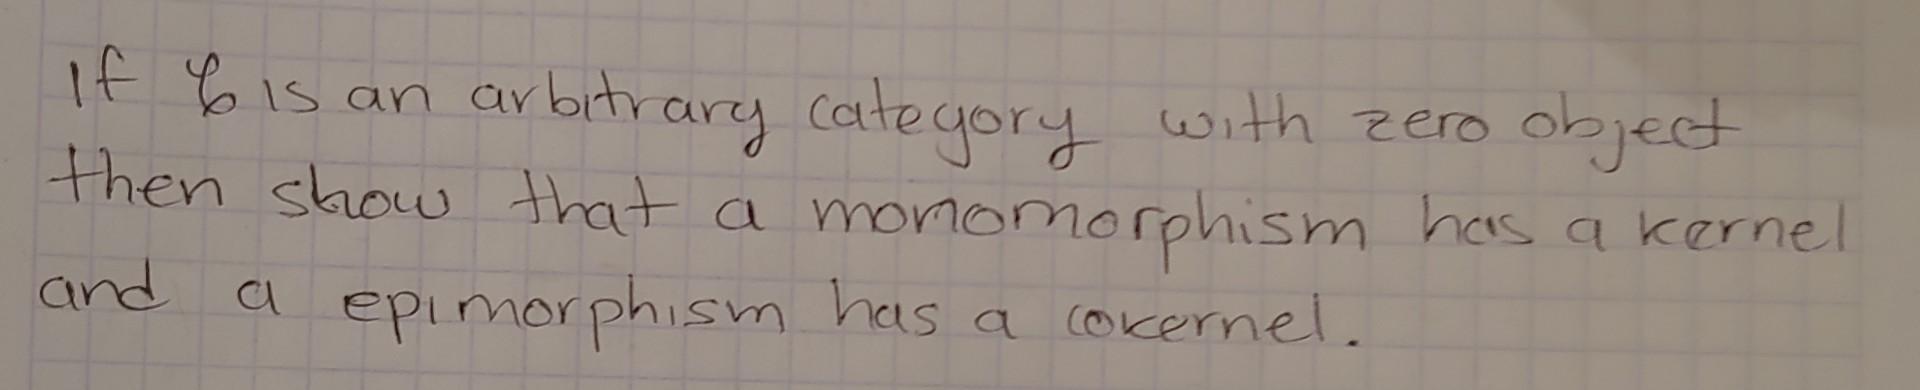 If 𝒞 is an arbitrary category with zero object
then show that a monomorphism has a kernel
and a epimorphism has a cokernel.